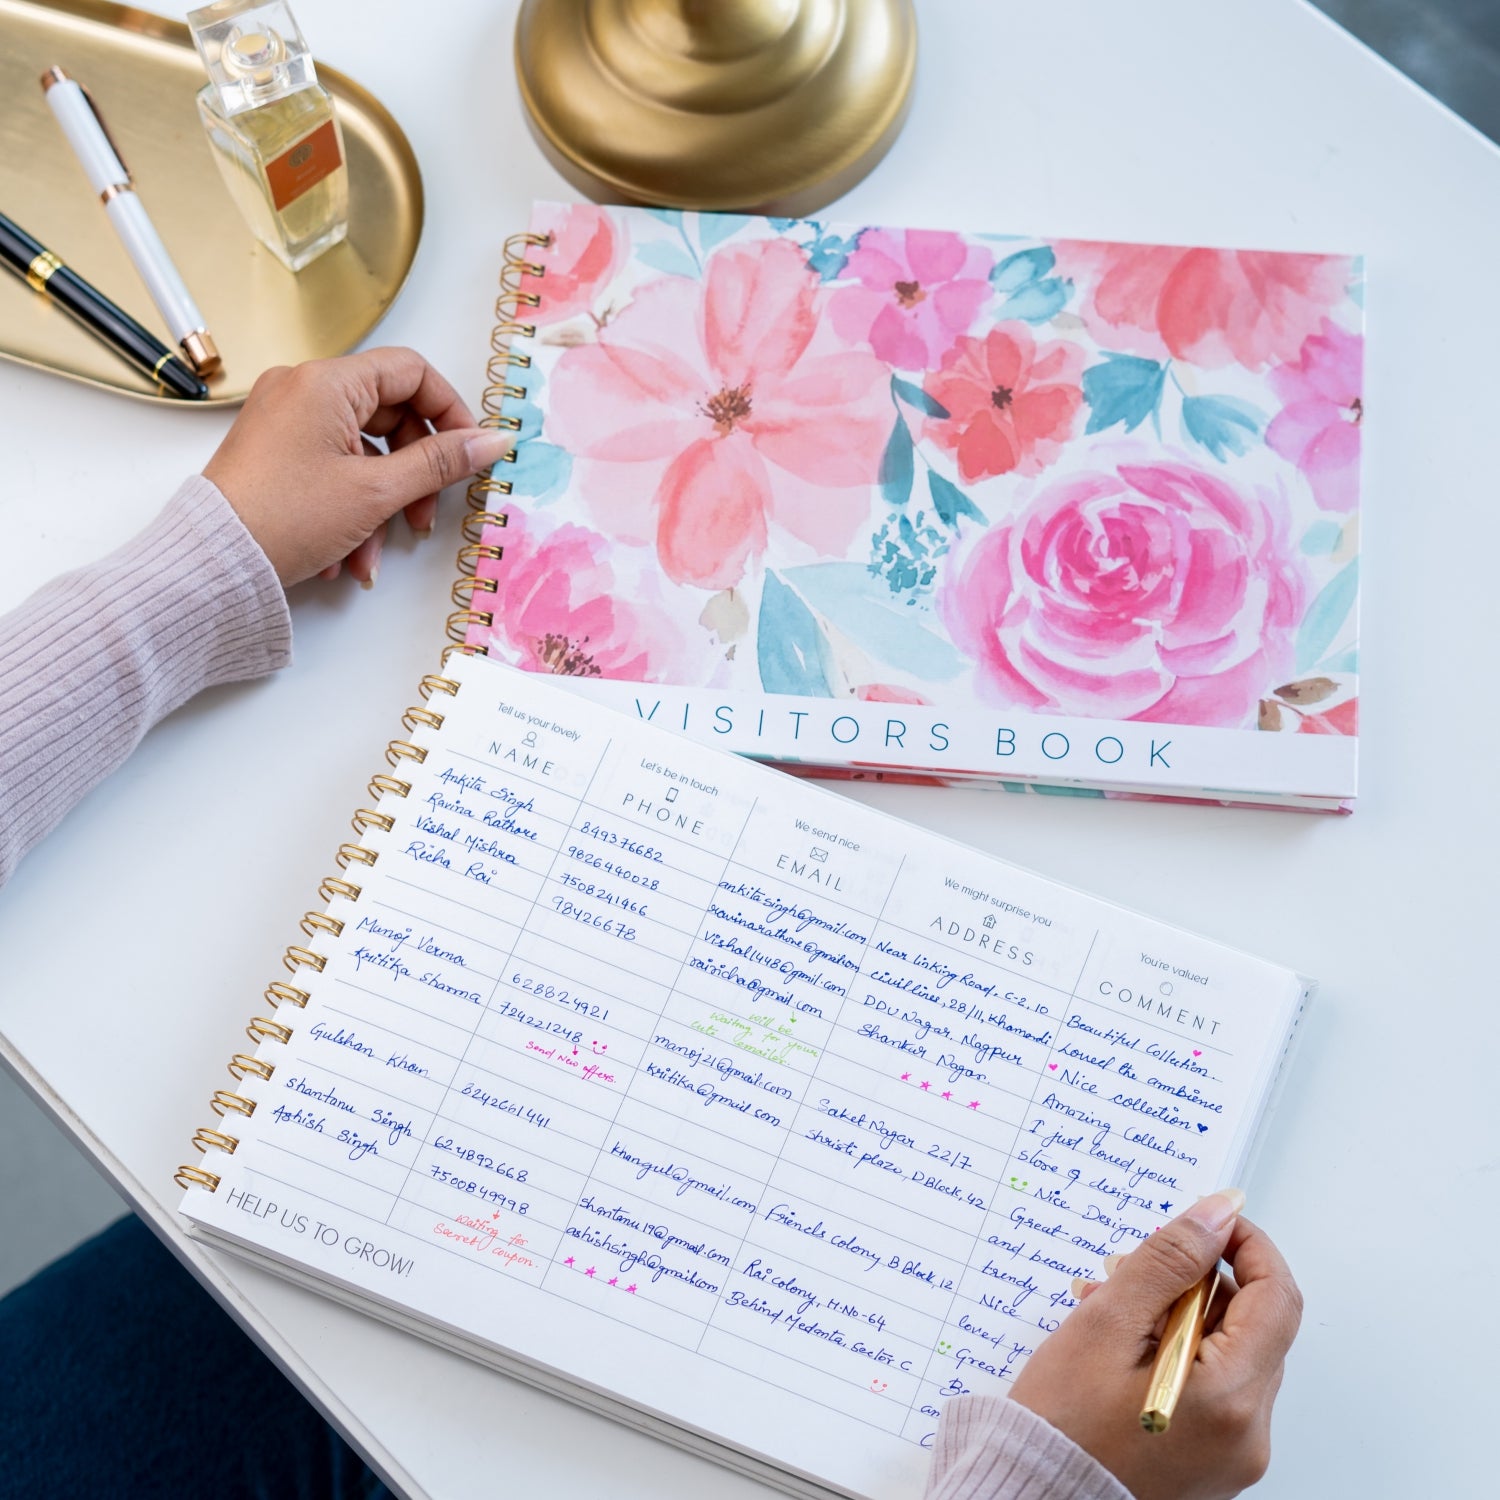 VISITORS BOOK
Tell us your lovely
NAME
Let's be in touch
PHONE
We send nice
EMAIL
We might surprise you
ADDRESS
You're valued
COMMENT
Ankita Singh
Ravina Rathore
Vishal Mishra
Richa Rai
Manoj Verma
Kritika Sharma
Gulshan Khan
Shantanu Singh
Ashish Singh
849376682
9826440028
7508241466
98426678
628824921
724221248
Send New offers.
8242661441
624892668
7500849998
Waiting for
Secret coupon.
ankitasingh@gmail.com
ravinarathore@gmail.com
vishal1448@gmil.com
rairicha@gmail.com
will be
waiting for your
cute emailes.
manoj21@gmail.com
kritika@gmail.com
khangul@gmail.com
shantanu19@gmail.com
ashishsingh@gmail.com
Near linking Road, C-2, 10
civil lines, 28/11, Khamardi
DDU Nagar, Nagpur
Shankar Nagar.
Saket Nagar 22/7
Shristi plaza, D Block, 42
Friends colony B Block, 12
Rai colony, H.No-64
Behind Medanta, Sector C
Beautiful Collection.
Loved the ambience
Nice collection
Amazing Collection
I just loved your
store & designs
Nice Designs
Great ambi
and beautif
trendy des
Nice
loved yo
Great
Be
an
HELP US TO GROW!